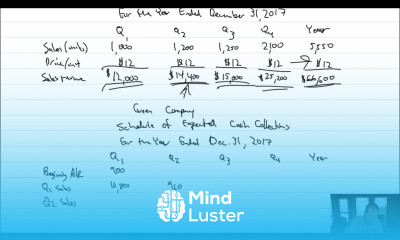 For the Year Ended December 31, 2017
Q1 Q2 Q3 Q4 Year
Sales (units) 1,000 1,200 1,250 2,100 5,550
Price/unit $12 $12 $12 $12 $12
Sales revenue $12,000 $14,400 $15,000 $25,200 $66,600
Green Company
Schedule of Expected Cash Collections
For the Year Ended Dec. 31, 2017
Q1 Q2 Q3 Q4 Year
Beginning A/R 900
Q1 Sales 10,800 960
Q2 Sales
Mind
Luster